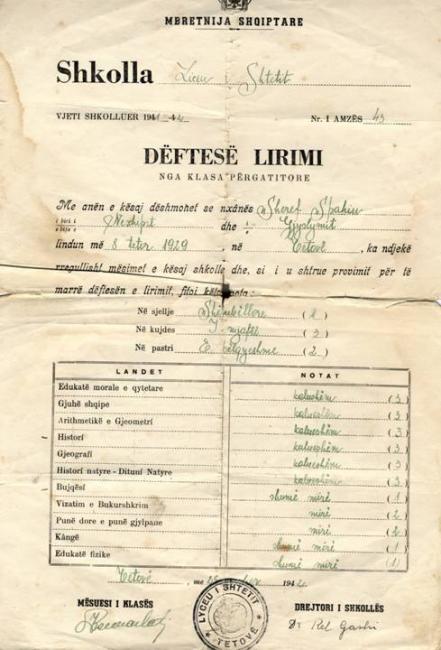 MBRETNIJA SHQIPTARE
Shkolla Liceu i Shtetit
VJETI SHKOLLUER 1941-42 NR. I AMZËS 43
DËFTESË LIRIMI
NGA KLASA PËRGATITORE
Me anën e kësaj dëshmohet se nxânës Sheref Spahiu
i biri i
e bija e Nexhipit dhe Gjylymit
lindun më 8 tetor 1929, në Tetovë, ka ndjekë
rregullisht mësimet e kësaj shkolle dhe, si i u shtrue provimit për të
marrë dëftesën e lirimit, fitoi këto nota:
Në sjellje Shëmbëllore (2)
Në kujdes I ngjaftë (3)
Në pastri E (2)
LANDET NOTAT
Edukatë morale e qytetare kalueshëm (3)
Gjuhë shqipe kalueshëm (3)
Arithmetikë e Gjeometri kalueshëm (3)
Histori kalueshëm (3)
Gjeografi kalueshëm (3)
Histori natyre - Dituni Natyre kalueshëm (3)
Bujqësi shumë mirë (1)
Vizatim e Bukurshkrim mirë (2)
Punë dore e punë gjylpane mirë (2)
Kângë shumë mirë (1)
Edukatë fizike shumë mirë (1)
Tetovë, me 1942
MËSUESI I KLASËS DREJTORI I SHKOLLËS
LYCEU I SHTETIT
TETOVË
Gashi